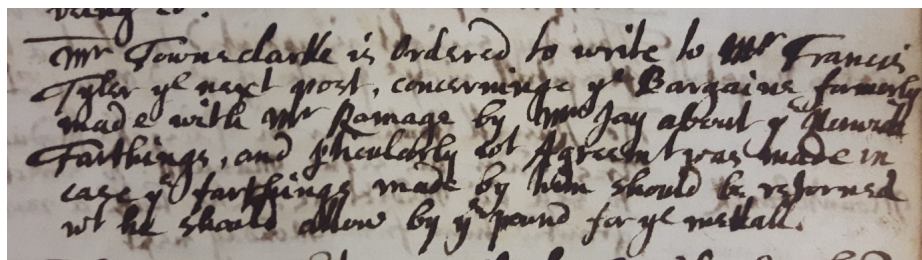 Mr Townsclarke is Ordered to write to Mr Francis
Tyler ye next post, concerninge ye Bargaine formerly
made with Mr Ramage by Mr Jay about ye Norwich
Farthings, and pticularly wt Agreemt was made in
case ye farthings made by him should be retorned
wt he should allow by ye pound for ye mettall.